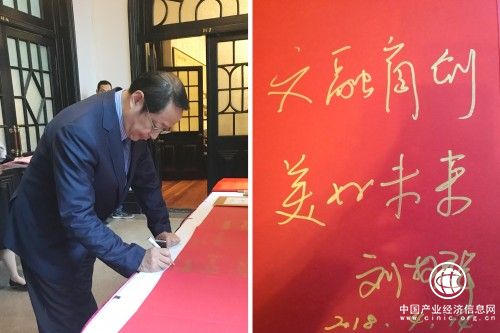 文融商创
美好未来
刘
2018.
中国产业经济信息网
www.cinic.org.cn